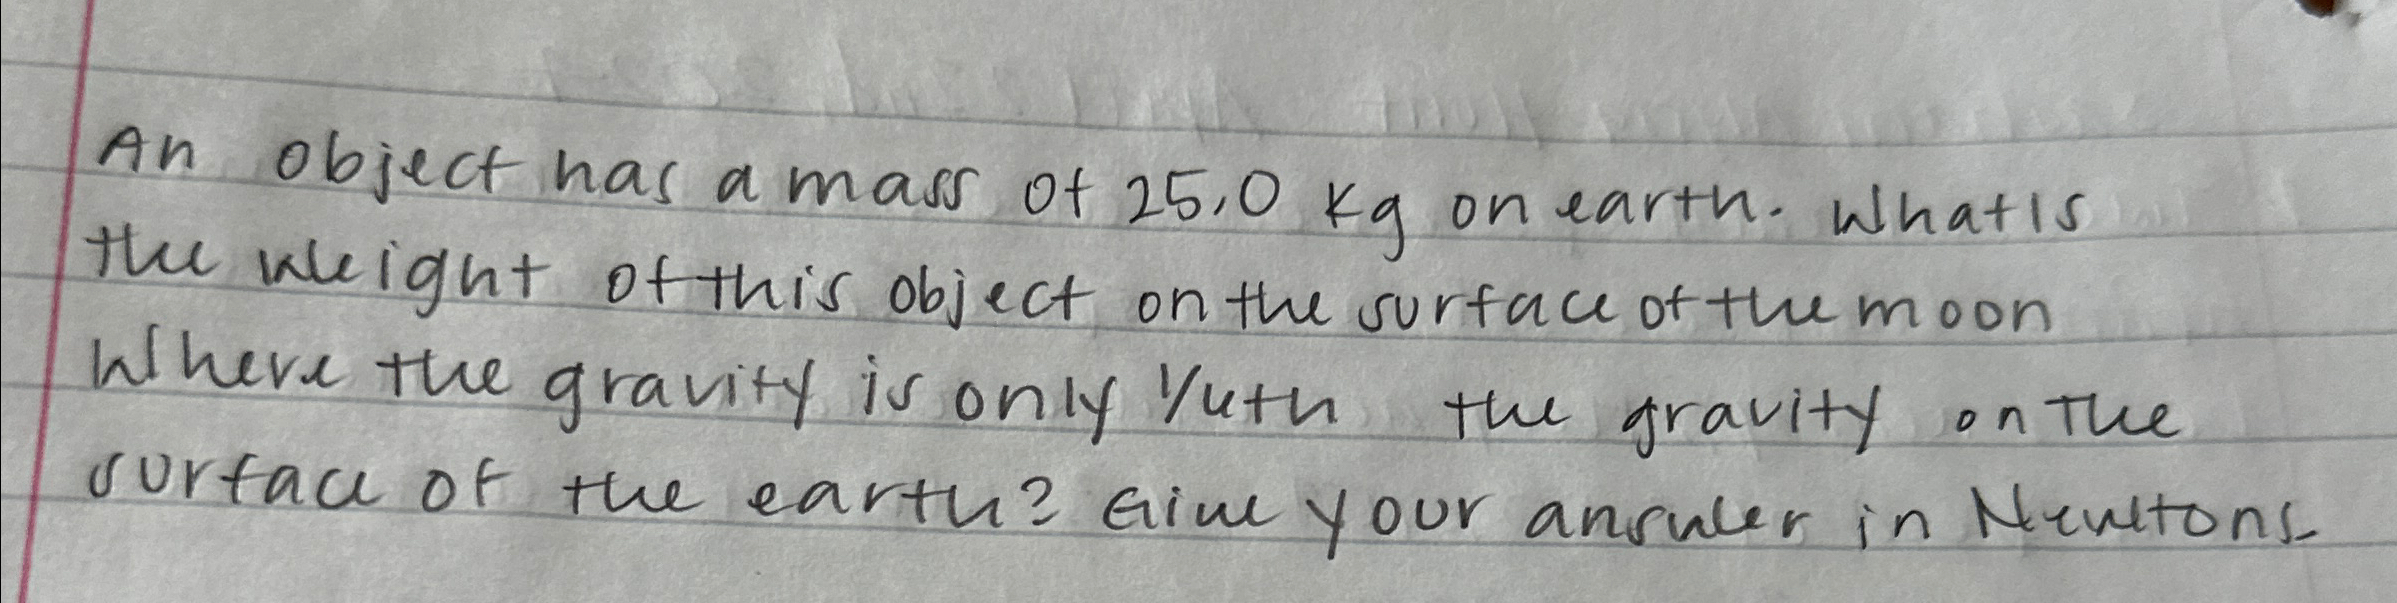 An object has a mass of 25.0 kg on earth. What is
the weight of this object on the surface of the moon
Where the gravity is only the gravity on the
surface of the earth? Give your answer in Newtons